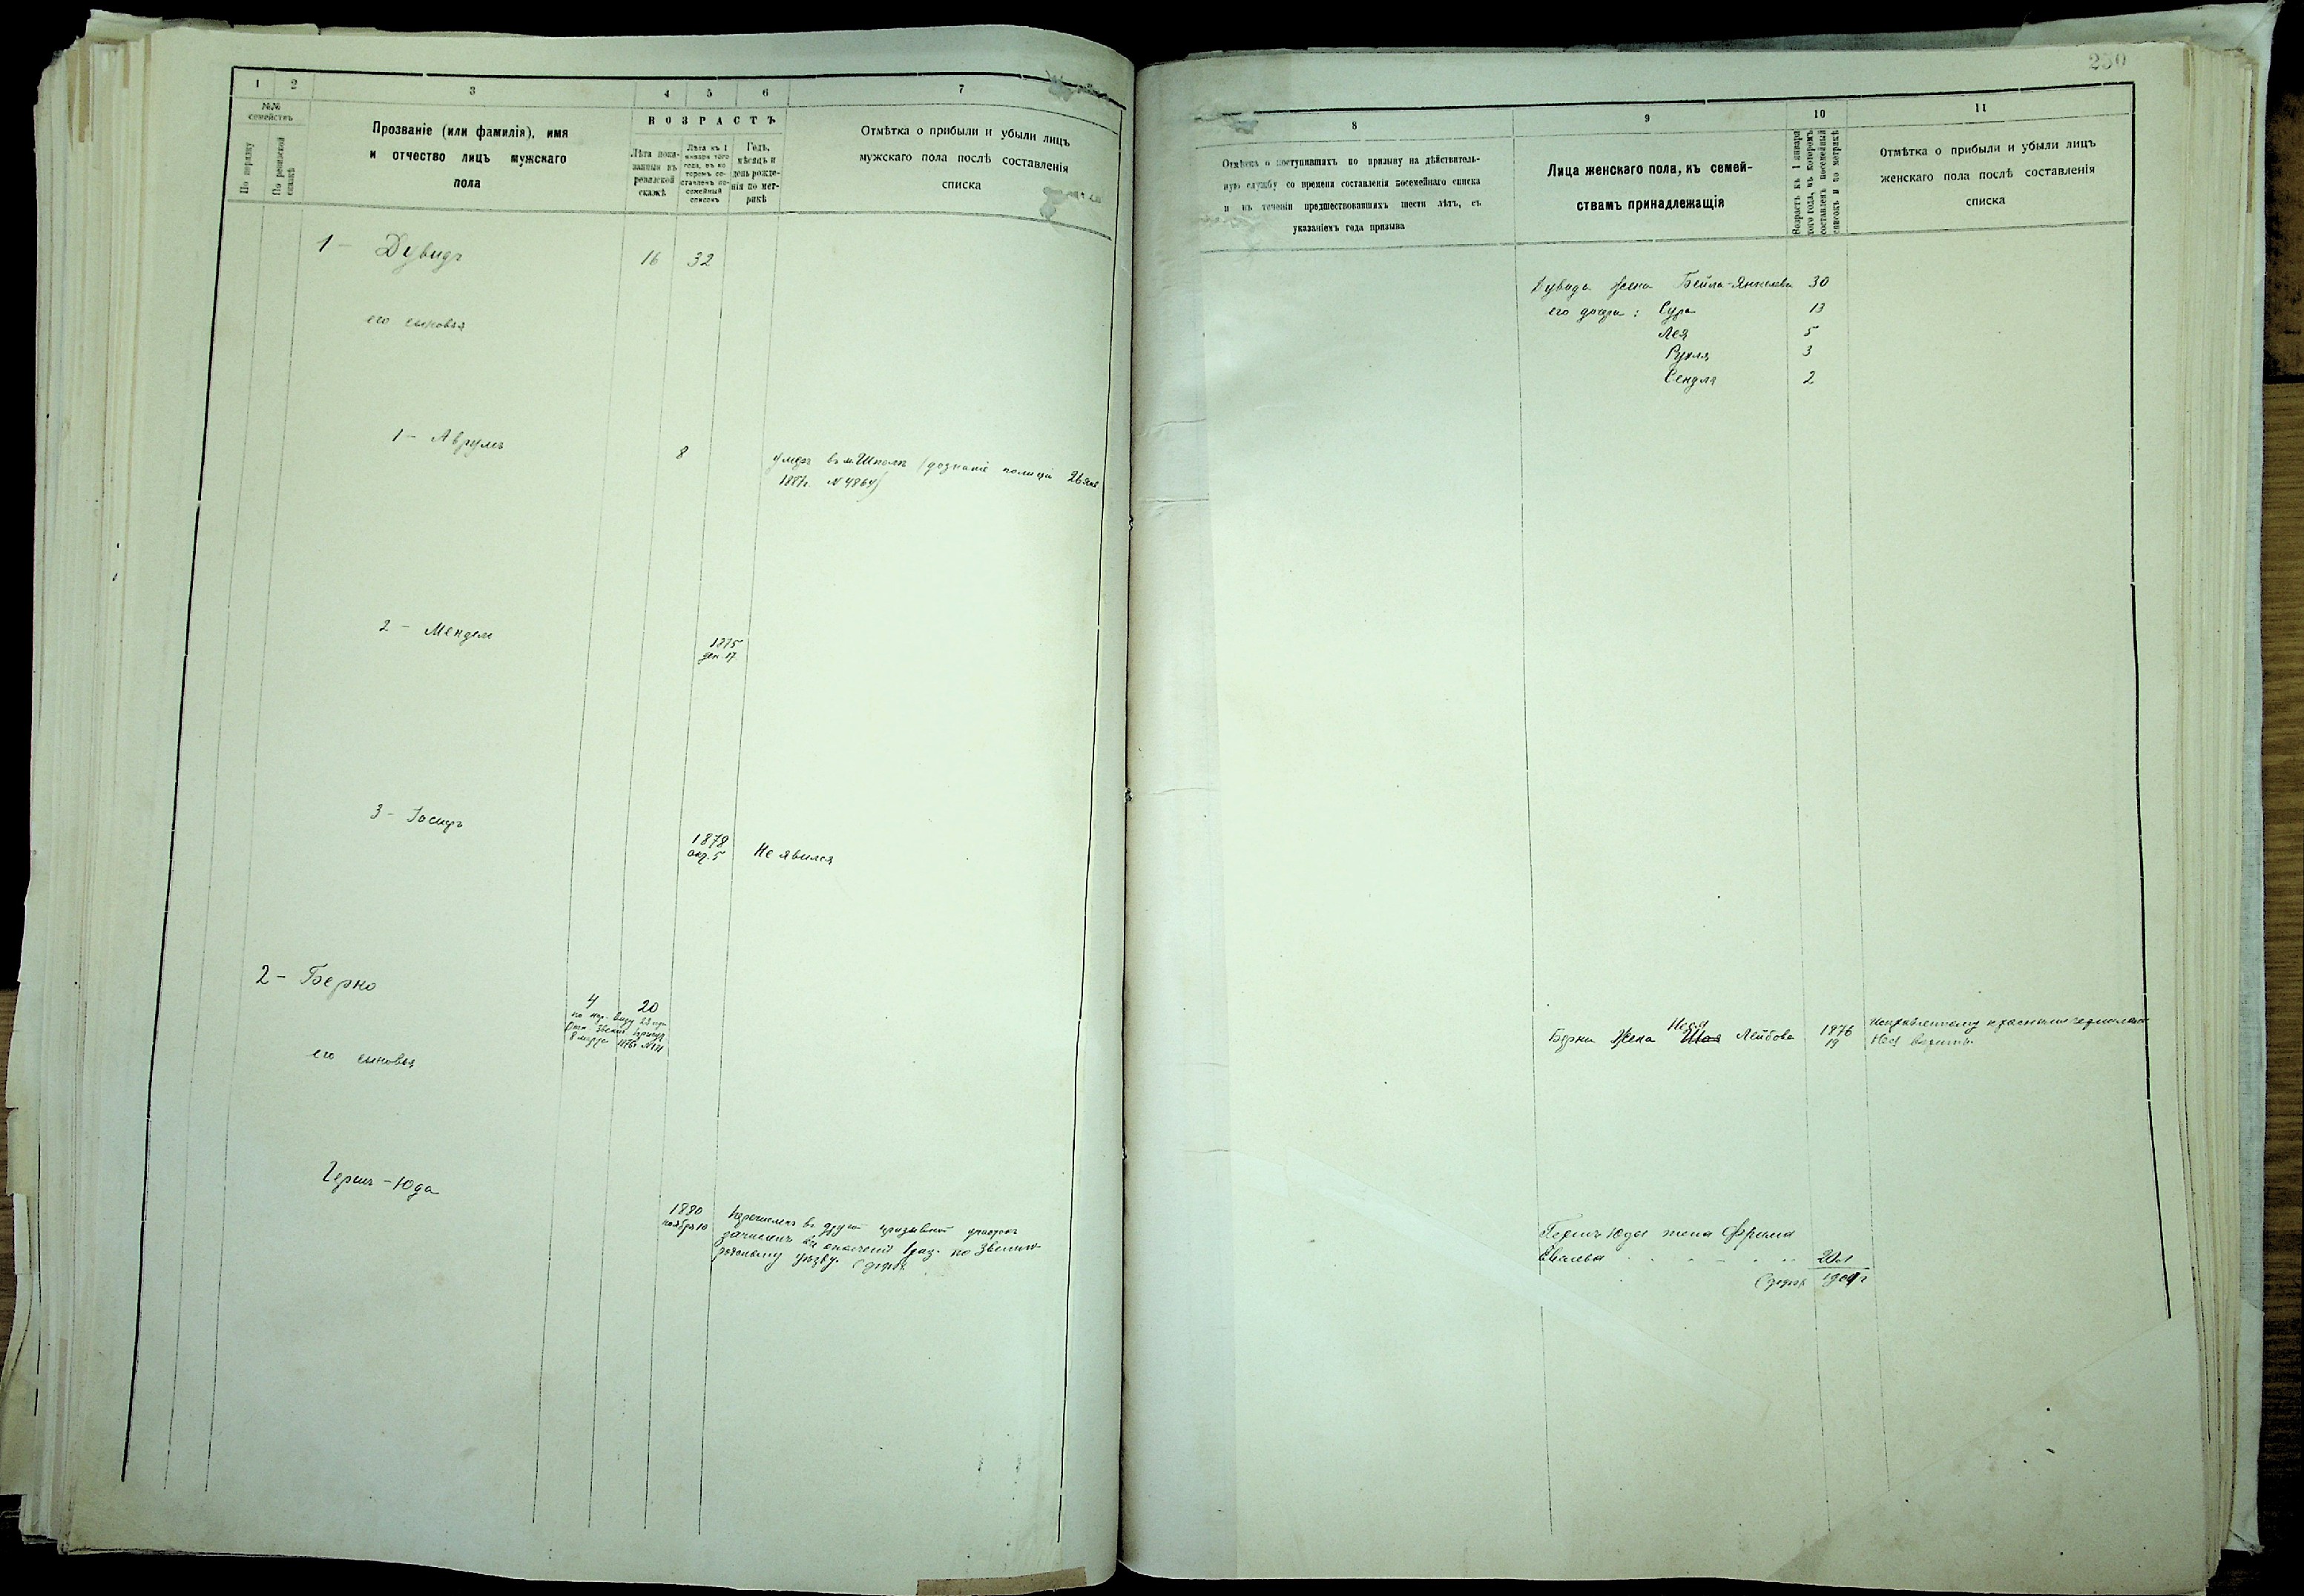 1 2 3 4 5 6 7
№№ семействъ
По порядку
По ревизской сказкѣ
Прозваніе (или фамилія), имя
и отчество лицъ мужскаго
пола
ВОЗРАСТЪ
Лѣта пока-
занныя въ
ревизской
сказкѣ
Лѣта къ 1
января того
года, въ ко
торомъ со-
ставленъ по-
семейный
списокъ
Годъ,
мѣсяцъ и
день рожде-
нія по мет-
рикѣ
Отмѣтка о прибыли и убыли лицъ
мужскаго пола послѣ составленія
списка
1 - Дувидъ 16 32
его сыновья
1 - Аврумъ 8 умеръ въ м. Шполѣ (дознаніе полиціи 26 янв
1887г. N 4864)
2 - Мендель 1875
дек. 17
3 - Іосифъ 1878
окт. 5 Не явился
2 - Берко 4 20
его сыновья
Гершъ-Юда 1880
ноября 10
Перечисленъ въ другой призывной участокъ
зачисленъ въ ополченіе 1 раз. по Звениго-
родскому уѣзду.
230
8 9 10 11
Отмѣтка о поступившихъ по призыву на дѣйствитель-
ную службу со времени составленія посемейнаго списка
и въ теченіи предшествовавшихъ шести лѣтъ, съ
указаніемъ года призыва
Лица женскаго пола, къ семей-
ствамъ принадлежащія
Возрастъ къ 1 января
того года, въ которомъ
составленъ посемейный
списокъ и по метрикѣ
Отмѣтка о прибыли и убыли лицъ
женскаго пола послѣ составленія
списка
Дувида жена Бейла-Янкелева 30
его дочери: Сура 13
Лея 5
Рухля 3
Сендля 2
Берки жена Неся Лейбова 1876
19
Гершъ Юды жена Фрима
20 л